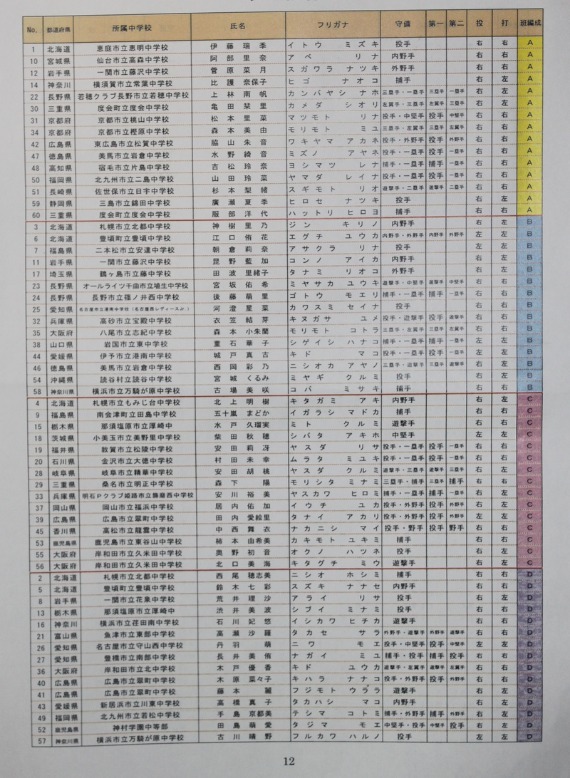 No. 都道府県 所属中学校 氏名 フリガナ 守備 第一 第二 投 打 班編成
1 北海道 恵庭市立恵明中学校 伊藤瑞季 イトウ ミズキ 投手 右 右 A
10 宮城県 仙台市立高森中学校 阿部里奈 アベ リナ 内野手 右 右 A
12 岩手県 一関市立藤沢中学校 菅原菜月 スガワラ ナツキ 外野手 右 右 A
14 神奈川 横須賀市立常葉中学校 比護奈保子 ヒゴ ナオコ 捕手 右 左 A
22 長野県 若穂クラブ長野市立若穂中学校 上林南帆 カンバヤシ ナホ 右 右 A
30 三重県 度会町立度会中学校 亀田栞里 カメダ シオリ 右 右 A
31 京都府 京都市立桃山中学校 松本里菜 マツモト リナ 投手・中堅手 投手 中堅手 右 右 A
34 京都府 京都市立樫原中学校 森本美由 モリモト ミユ 右 右 A
42 広島県 東広島市立松賀中学校 脇山朱音 ワキヤマ アカネ 投手・外野手 投手 右 右 A
47 徳島県 美馬市立岩倉中学校 水野綾音 ミズノ アヤネ 投手・一塁手 投手 一塁手 右 右 A
48 高知県 宿毛市立片島中学校 吉松玲奈 ヨシマツ レナ 捕手・一塁手 捕手 一塁手 右 右 A
50 福岡県 北九州市立二島中学校 山田玲菜 ヤマダ レイナ 投手・一塁手 投手 一塁手 右 右 A
51 長崎県 佐世保市立日宇中学校 杉本梨緒 スギモト リオ 右 右 A
59 静岡県 三島市立錦田中学校 廣瀬夏季 ヒロセ ナツキ 投手 右 右 A
60 三重県 度会町立度会中学校 服部洋代 ハットリ ヒロヨ 捕手 右 右 A
3 北海道 札幌市立北都中学校 神樹里乃 ジン キリノ 内野手 右 左 B
6 北海道 豊頃町立豊頃中学校 江口侑花 エグチ ユウカ 内野手・外野手 内野手 外野手 右 左 B
7 福島県 二本松市立安達中学校 朝倉莉奈 アサクラ リナ 投手 右 左 B
11 岩手県 一関市立藤沢中学校 昆野藍加 コンノ アイカ 内野手 右 右 B
17 埼玉県 鶴ヶ島市立藤中学校 田波里緒子 タナミ リオコ 外野手 右 右 B
23 長野県 オールライツ千曲市立埴生中学校 宮坂佑希 ミヤサカ ユウキ 右 右 B
24 長野県 長野市立篠ノ井西中学校 後藤萌里 ゴトウ モエリ 捕手・一塁手 捕手 一塁手 右 右 B
25 愛知県 河澄里菜 カワスミ セイナ 投手 右 右 B
32 兵庫県 高砂市立宝殿中学校 衣笠結芽 キヌガサ ユメ 投手・遊撃手 投手 遊撃手 右 右 B
35 大阪府 八尾市立志紀中学校 森本小朱蘭 モリモト コトラ 右 右 B
38 山口県 岩国市立東中学校 重石華子 シゲイシ ハナコ 投手・一塁手 投手 一塁手 左 左 B
44 愛媛県 伊予市立港南中学校 城戸真古 キド マコ 投手・一塁手 投手 一塁手 右 左 B
46 徳島県 美馬市立岩倉中学校 西岡彩乃 ニシオカ アヤノ 右 右 B
54 沖縄県 読谷村立読谷中学校 宮城くるみ ミヤギ クルミ 投手 右 右 B
58 神奈川県 横浜市立万騎が原中学校 古場美咲 コバ ミサキ 捕手 右 右 B
4 北海道 札幌市立もみじ台中学校 北上明樹 キタガミ アキ 内野手 右 左 C
9 福島県 南会津町立田島中学校 五十嵐まどか イガラシ マドカ 捕手 右 右 C
15 栃木県 那須塩原市立厚崎中 水戸久瑠実 ミト クルミ 遊撃手 右 右 C
18 茨城県 小美玉市立美野里中学校 柴田秋穂 シバタ アキホ 中堅手 左 左 C
19 福井県 敦賀市立松陵中学校 安田莉冴 ヤスダ リサ 投手・一塁手 投手 一塁手 右 右 C
20 石川県 金沢市立大徳中学校 村田未幸 ムラタ ミユキ 投手・一塁手 投手 一塁手 右 右 C
28 岐阜県 岐阜市立精華中学校 安田胡桃 ヤスダ クルミ 右 右 C
29 三重県 桑名市立明正中学校 森下陽 モリシタ ミナミ 三塁手・捕手 三塁手 捕手 右 右 C
33 兵庫県 安川裕美 ヤスカワ ヒロミ 捕手・一塁手 捕手 一塁手 右 左 C
37 岡山県 岡山市立福浜中学校 居内佑加 イウチ ユカ 投手・外野手 投手 外野手 左 左 C
39 広島県 広島市立翠町中学校 田内愛絵里 タナイ アカリ 投手・外野手 投手 外野手 左 左 C
45 香川県 高松市立龍雲中学校 中西真衣 ナカニシ マイ 投手・野手 投手 野手 右 右 C
53 鹿児島県 鹿児島市立東谷山中学校 柿本由希美 カキモト ユキミ 捕手 右 右 C
55 大阪府 岸和田市立久米田中学校 奥野初音 オクノ ハツネ 投手 右 左 C
56 大阪府 岸和田市立久米田中学校 北口美海 キタグチ ミウ 遊撃手 右 左 C
2 北海道 札幌市立北都中学校 西尾穂志美 ニシオ ホシミ 捕手 右 右 D
5 北海道 豊頃町立豊頃中学校 鈴木七彩 スズキ ナナセ 内野手 右 右 D
8 岩手県 一関市立花泉中学校 荒井理沙 アライ リサ 投手 右 左 D
13 栃木県 那須塩原市立厚崎中 渋井美波 シブイ ミナミ 投手 右 右 D
16 神奈川 横浜市立荏田南中学校 石川妃悠 イシカワ ヒチカ 遊撃手 右 左 D
21 富山県 魚津市立東部中学校 高瀬沙羅 タカセ サラ 外野手・遊撃手 外野手 遊撃手 右 右 D
26 愛知県 名古屋市立守山西中学校 丹羽萌 ニワ モエ 投手・中堅手 投手 中堅手 右 左 D
27 愛知県 豊橋市立南部中学校 長井美侑 ナガイ ミユ 捕手・投手 捕手 投手 右 右 D
36 大阪府 岸和田市立北中学校 木戸優香 キド ユウカ 右 右 D
40 広島県 広島市立翠町中学校 木原菜々子 キハラ ナナコ 投手・外野手 投手 外野手 右 右 D
41 広島県 広島市立翠町中学校 藤本麗 フジモト ウララ 遊撃手 右 左 D
43 愛媛県 新居浜市立川東中学校 高橋真子 タカハシ マコ 内野手 右 右 D
49 福岡県 北九州市立若松中学校 手島京都美 テシマ コトミ 捕手・外野手 捕手 外野手 右 右 D
52 鹿児島県 神村学園中等部 田島萌愛 タジマ モエ 中堅手・投手 中堅手 投手 右 左 D
57 神奈川県 横浜市立万騎が原中学校 古川晴野 フルカワ ハルノ 投手 右 左 D
12